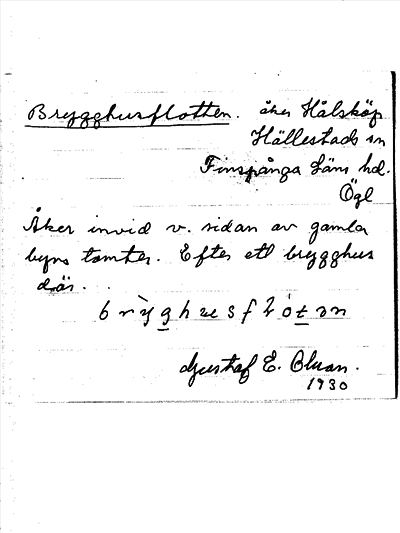 Brygghusflotten. åker Hålsköp
Hällestads sn
Finspånga läns hd.
Ögl
Åker invid v. sidan av gamla
byns tomter. Efter ett brygghus
där.
brỳghʉsflótən
Gustaf E. Olsson.
1930